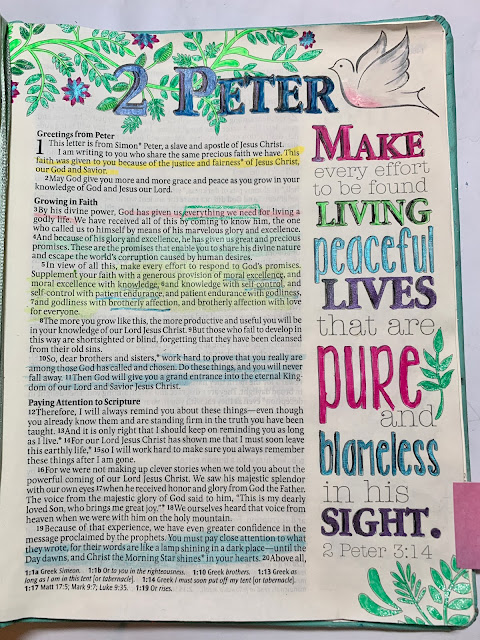 2 PETER
Greetings from Peter
1 This letter is from Simon* Peter, a slave and apostle of Jesus Christ.
I am writing to you who share the same precious faith we have. This
faith was given to you because of the justice and fairness* of Jesus Christ,
our God and Savior.
2May God give you more and more grace and peace as you grow in your
knowledge of God and Jesus our Lord.
Growing in Faith
3By his divine power, God has given us everything we need for living a
godly life. We have received all of this by coming to know him, the one
who called us to himself by means of his marvelous glory and excellence.
4And because of his glory and excellence, he has given us great and precious
promises. These are the promises that enable you to share his divine nature
and escape the world's corruption caused by human desires.
5In view of all this, make every effort to respond to God's promises.
Supplement your faith with a generous provision of moral excellence, and
moral excellence with knowledge, 6and knowledge with self-control, and
self-control with patient endurance, and patient endurance with godliness,
7and godliness with brotherly affection, and brotherly affection with love
for everyone.
8The more you grow like this, the more productive and useful you will be
in your knowledge of our Lord Jesus Christ. 9But those who fail to develop in
this way are shortsighted or blind, forgetting that they have been cleansed
from their old sins.
10So, dear brothers and sisters,* work hard to prove that you really are
among those God has called and chosen. Do these things, and you will never
fall away. 11Then God will give you a grand entrance into the eternal King-
dom of our Lord and Savior Jesus Christ.
Paying Attention to Scripture
12Therefore, I will always remind you about these things—even though
you already know them and are standing firm in the truth you have been
taught. 13And it is only right that I should keep on reminding you as long
as I live.* 14For our Lord Jesus Christ has shown me that I must soon leave
this earthly life,* 15so I will work hard to make sure you always remember
these things after I am gone.
16For we were not making up clever stories when we told you about the
powerful coming of our Lord Jesus Christ. We saw his majestic splendor
with our own eyes 17when he received honor and glory from God the Father.
The voice from the majestic glory of God said to him, "This is my dearly
loved Son, who brings me great joy."* 18We ourselves heard that voice from
heaven when we were with him on the holy mountain.
19Because of that experience, we have even greater confidence in the
message proclaimed by the prophets. You must pay close attention to what
they wrote, for their words are like a lamp shining in a dark place—until the
Day dawns, and Christ the Morning Star shines* in your hearts. 20Above all,
1:1a Greek Simeon. 1:1b Or to you in the righteousness. 1:10 Greek brothers. 1:13 Greek as
long as I am in this tent [or tabernacle]. 1:14 Greek I must soon put off my tent [or tabernacle].
1:17 Matt 17:5; Mark 9:7; Luke 9:35. 1:19 Or rises.
MAKE
every effort
to be found
LIVING
peaceful
LIVES
that are
PURE
and
blameless
in his
SIGHT.
2 Peter 3:14